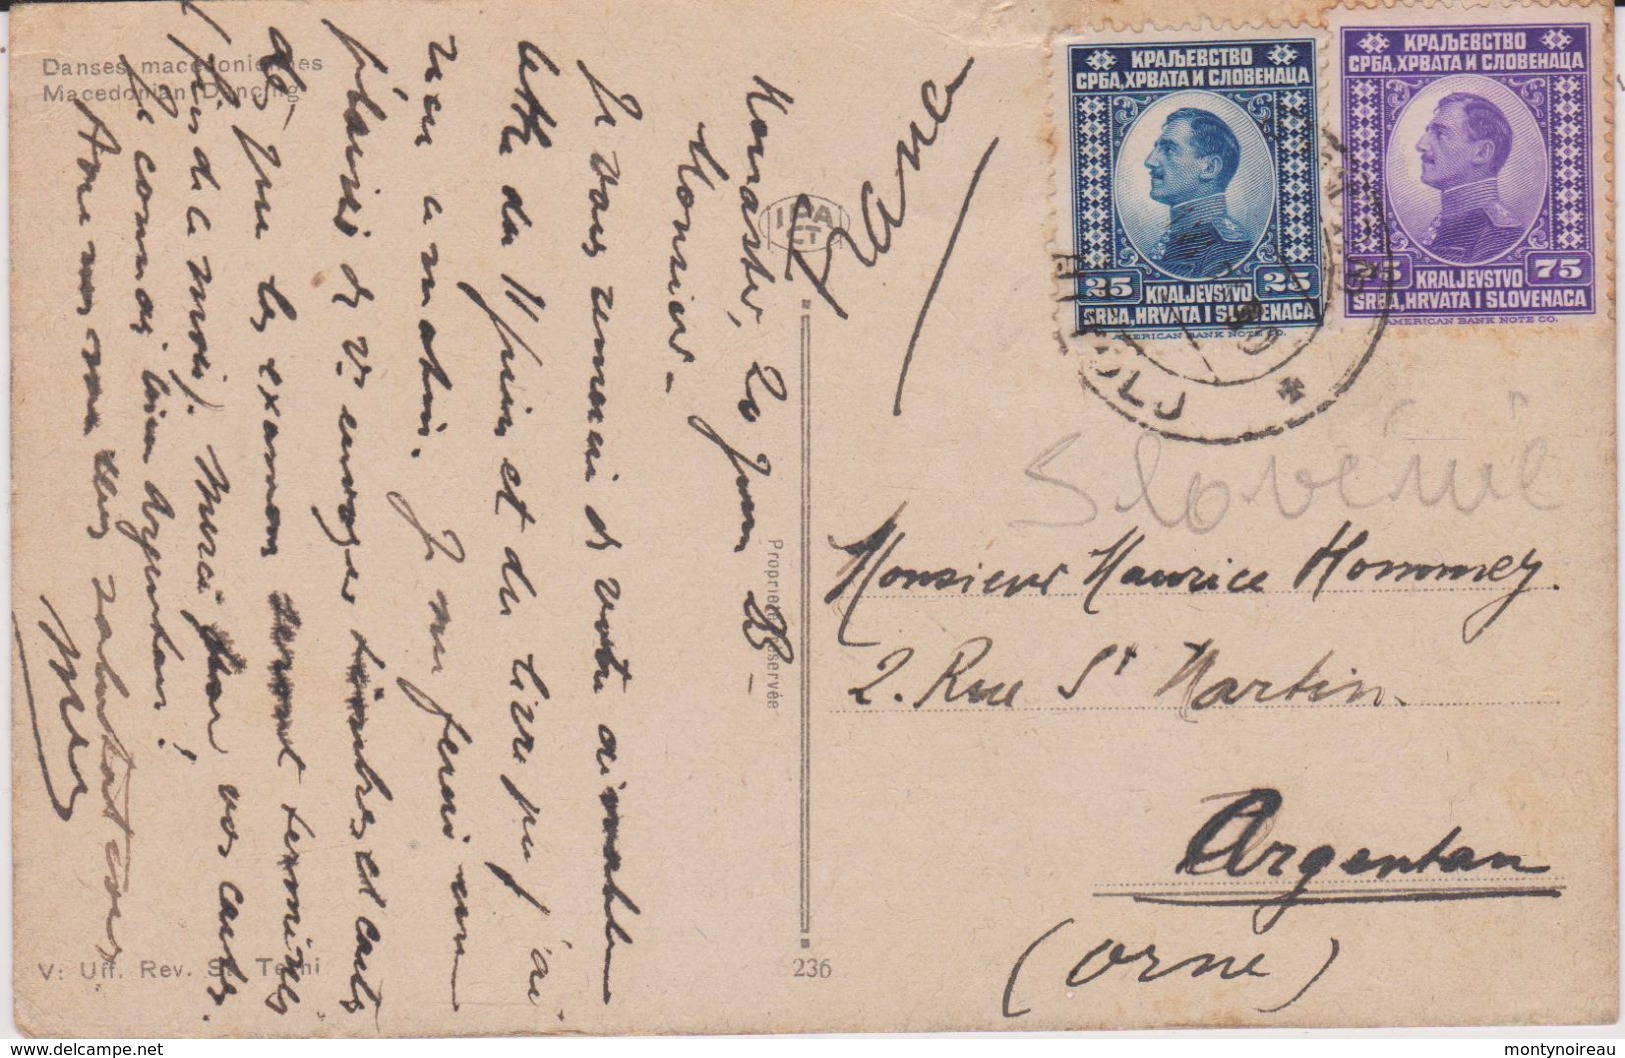 Danses macedoniennes
Macedonian Dancing
Monastir, 20 Juin 25 -
Monsieur -
Je vous remercie de votre aimable
lettre du 11 juin et du livre que j'ai
reçu ce matin. Je me ferai un
plaisir de vs envoyer timbres et cartes
dès que les examens seront terminés
(fin de ce mois). Merci pour vos cartes.
Je connais bien Argentan!
Avec mes meilleures salutations
V: Uff. Rev. St. Terni
236
Proprieté réservée
КРАЉЕВСТВО
СРБА, ХРВАТА И СЛОВЕНАЦА
25 KRALJEVSTVO 25
SRBA, HRVATA I SLOVENACA
AMERICAN BANK NOTE CO.
КРАЉЕВСТВО
СРБА, ХРВАТА И СЛОВЕНАЦА
75 KRALJEVSTVO 75
SRBA, HRVATA I SLOVENACA
AMERICAN BANK NOTE CO.
BITOLJ
Slovénie
Monsieur Maurice Hommey.
2. Rue St Martin.
Argentan
(Orne)
www.delcampe.net
montynoireau